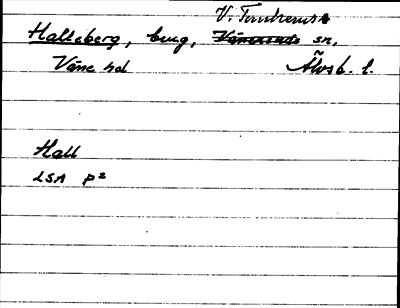 V. Tunhems
Halleberg, berg, Vänersnäs sn,
Väne hd Älvsb. l.
Hall
LSA P²